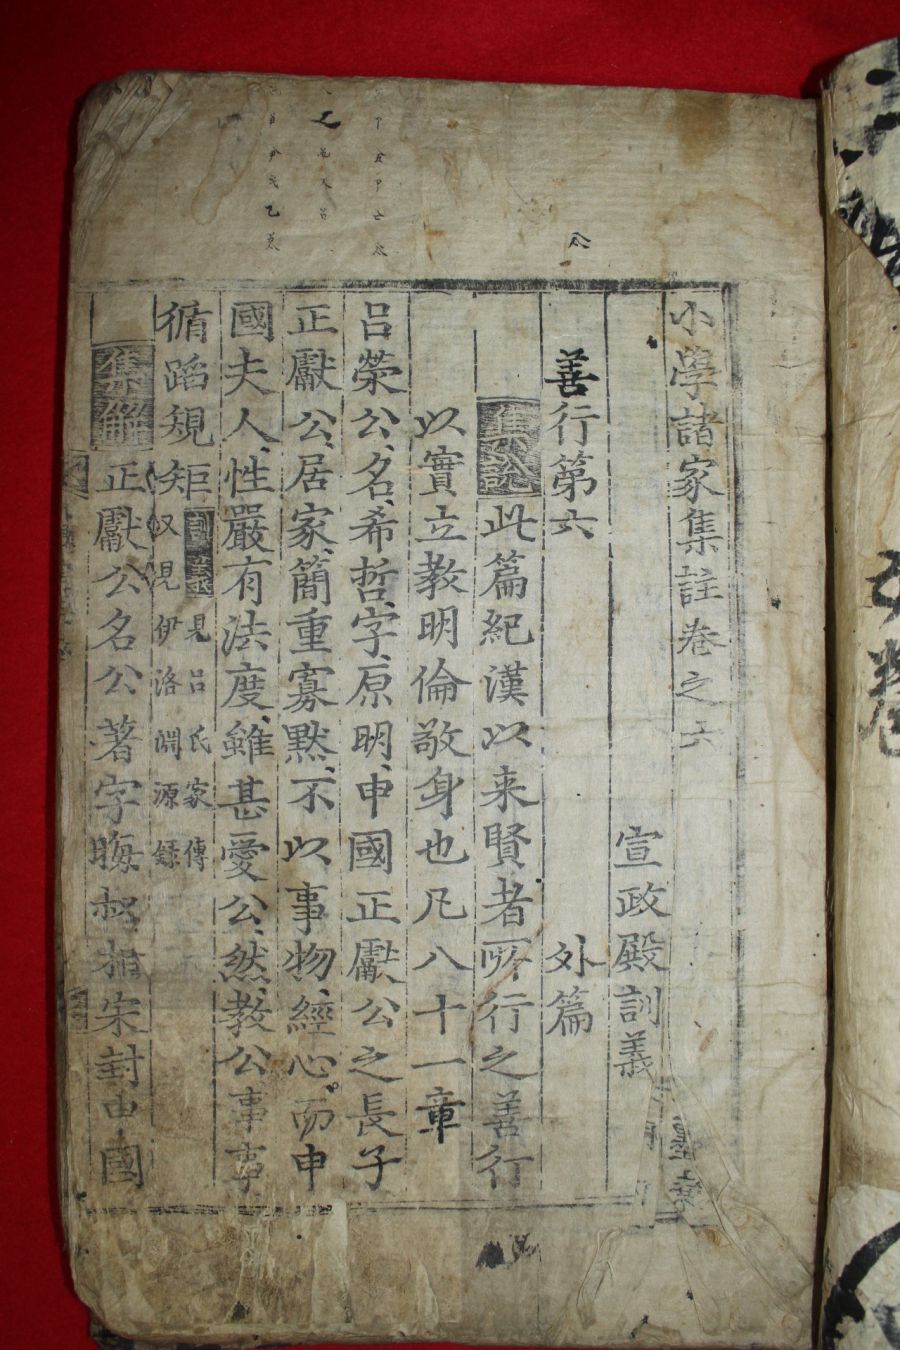 小學諸家集註卷之六
宣政殿訓義
善行第六 外篇
集說 此篇紀漢以来賢者所行之善行
以實立教明倫敬身也凡八十一章
呂榮公、名、希哲、字、原明、申國正獻公之長子
正獻公、居家、簡重寡默、不以事物、經心。而申
國夫人、性嚴有法度、雖甚愛公、然、教公事事
循蹈規矩 訓義 見呂氏家傳
又見伊洛淵源錄
集解 正獻公名公著字晦叔相宋封申國